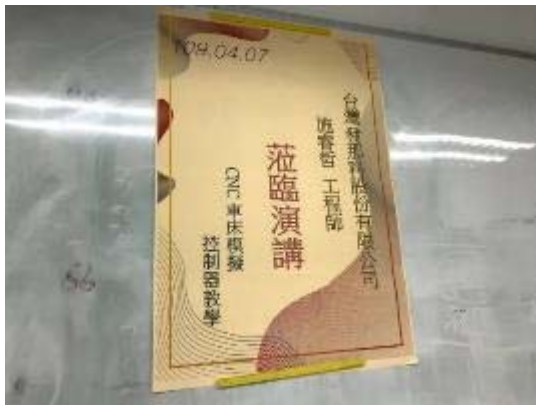 109.04.07
台灣發那科股份有限公司
施睿哲 工程師
蒞臨演講
CNC 車床模擬
控制器教學
56